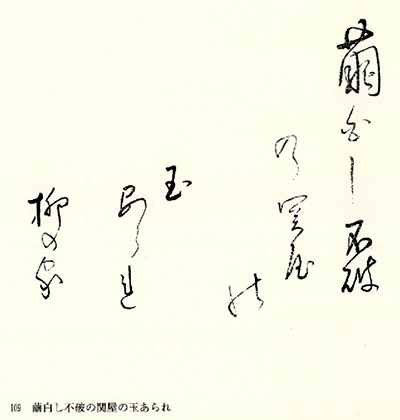 繭白し不破
の関屋
の
玉
あられ
柳の家
109 繭白し不破の関屋の玉あられ